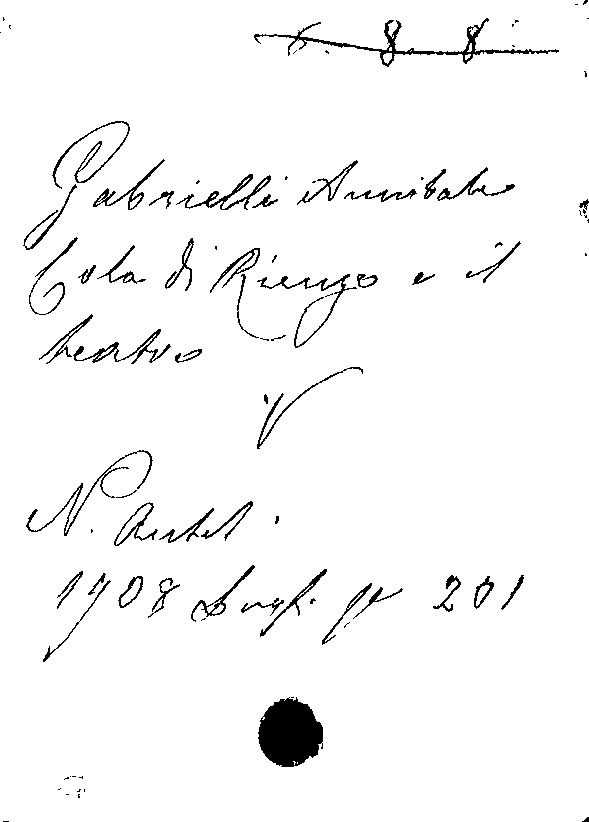 8 8
Gabrielli Annibale
Cola di Rienzo e il
teatro
V
N. Antol.
1908 Lugl. pg 201